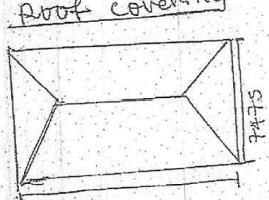 Roof covering
7475